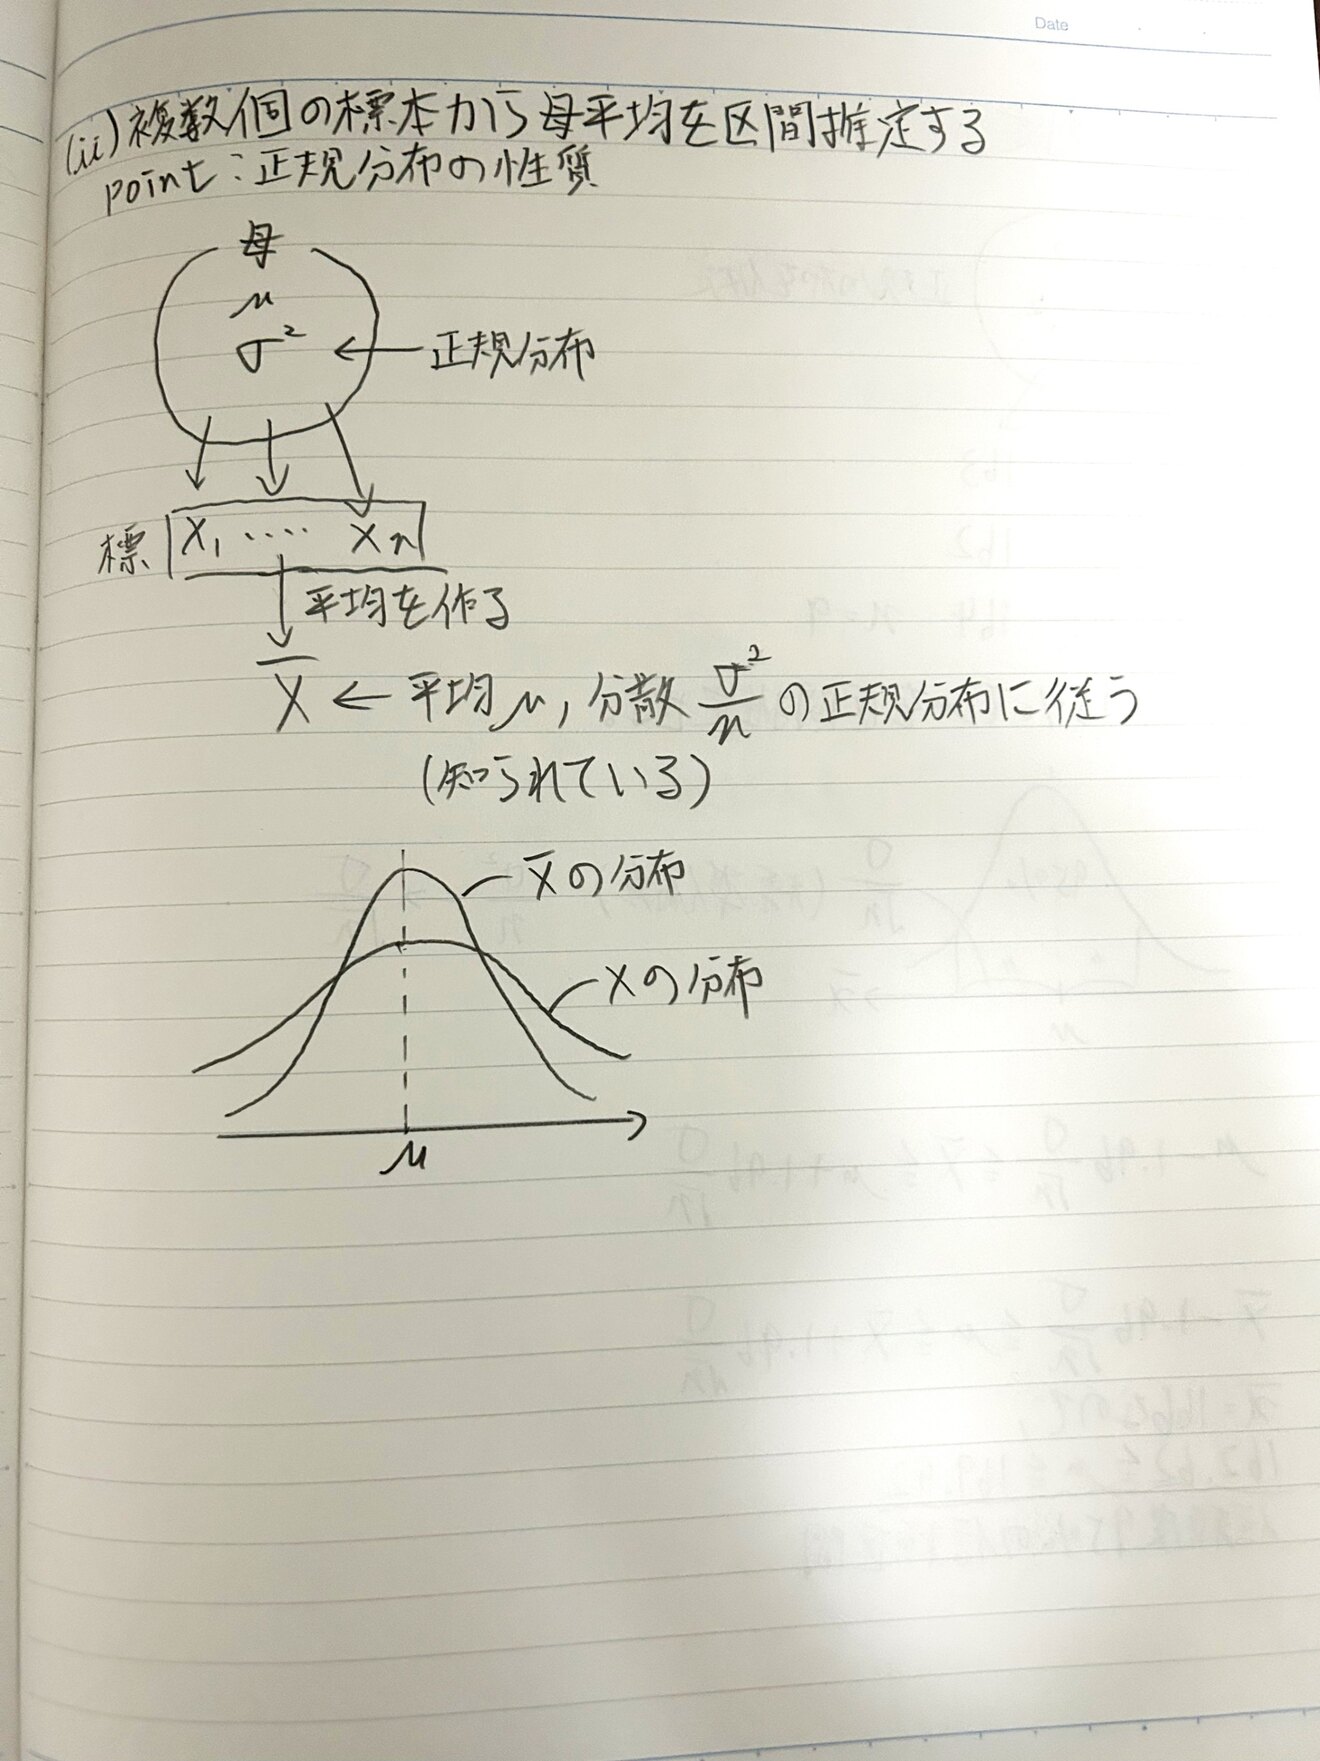 Date
(ii)複数個の標本から母平均を区間推定する
point:正規分布の性質
母
μ
σ² ← 正規分布
標 X₁ ‥‥ Xn
平均を作る
X̄ ← 平均μ, 分散 σ²/n の正規分布に従う
(知られている)
X̄の分布
Xの分布
μ